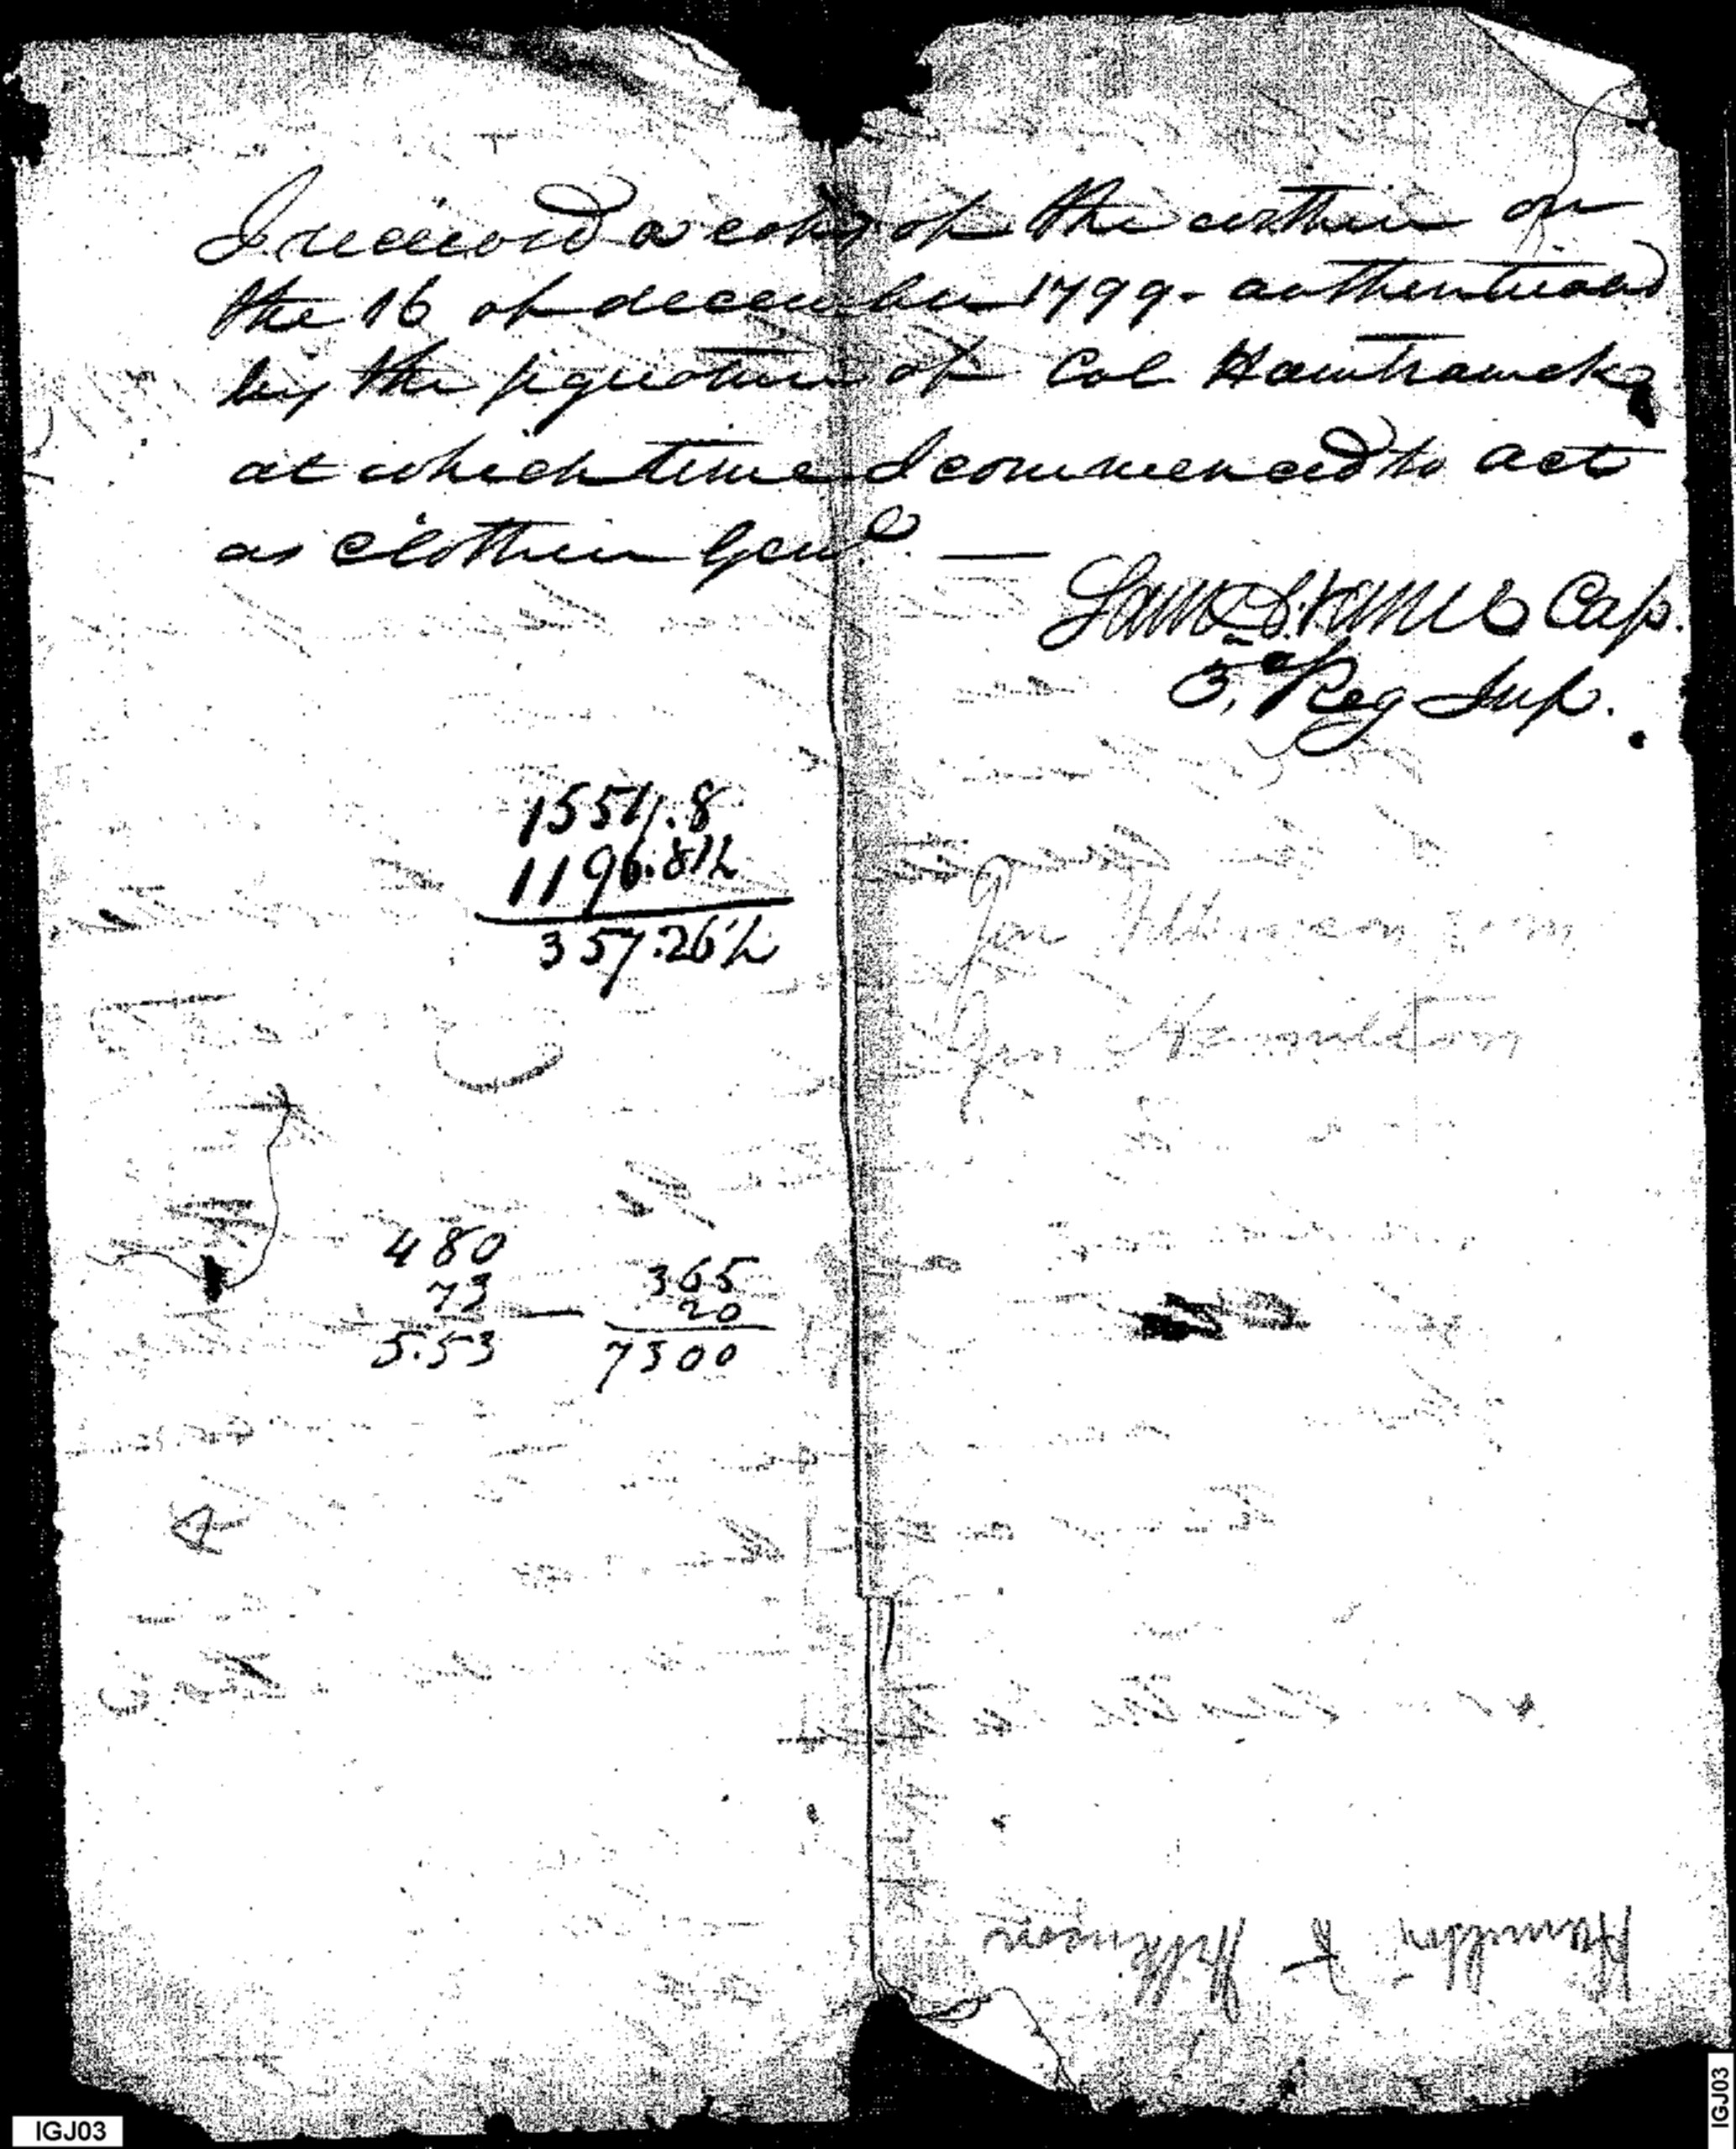 I received a copy of the within on
the 16 of december 1799. authenticated
by the signature of Col Hamtramck
at which time I commenced to act
as clothier Genl. —
Cap.
3, Reg Inf.
1554.8
1196.81½
357.26½
Gen Wilkinson from
Gen Hamilton
480
73
5.53
365
20
7300
Hamilton to Wilkinson
IGJ03
IGJ03